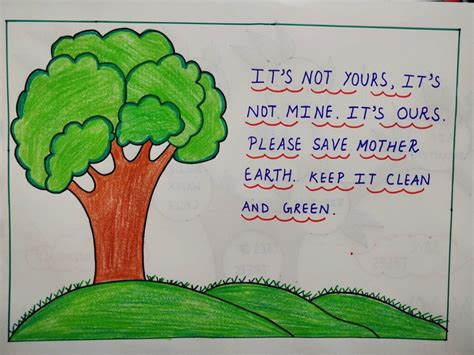 IT'S NOT YOURS, IT'S
NOT MINE. IT'S OURS.
PLEASE SAVE MOTHER
EARTH. KEEP IT CLEAN
AND GREEN.